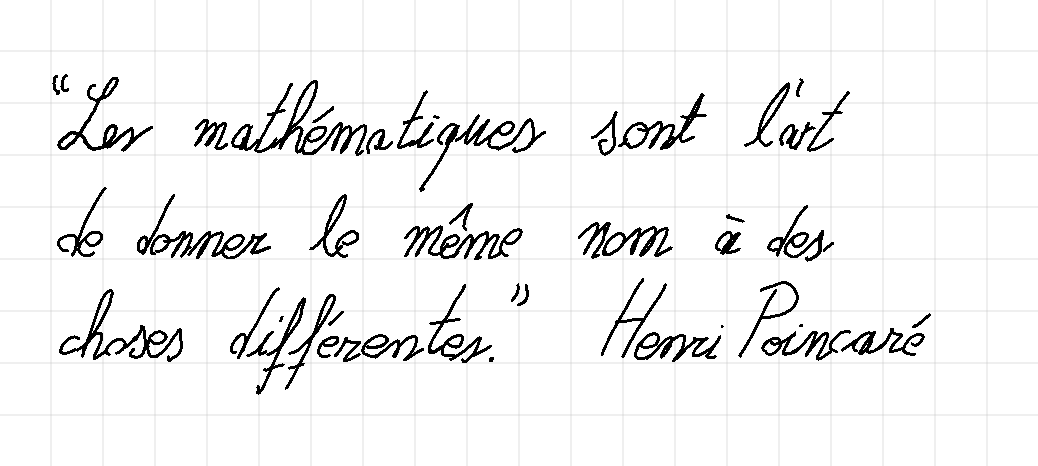 “Les mathématiques sont l'art
de donner le même nom à des
choses différentes.” Henri Poincaré